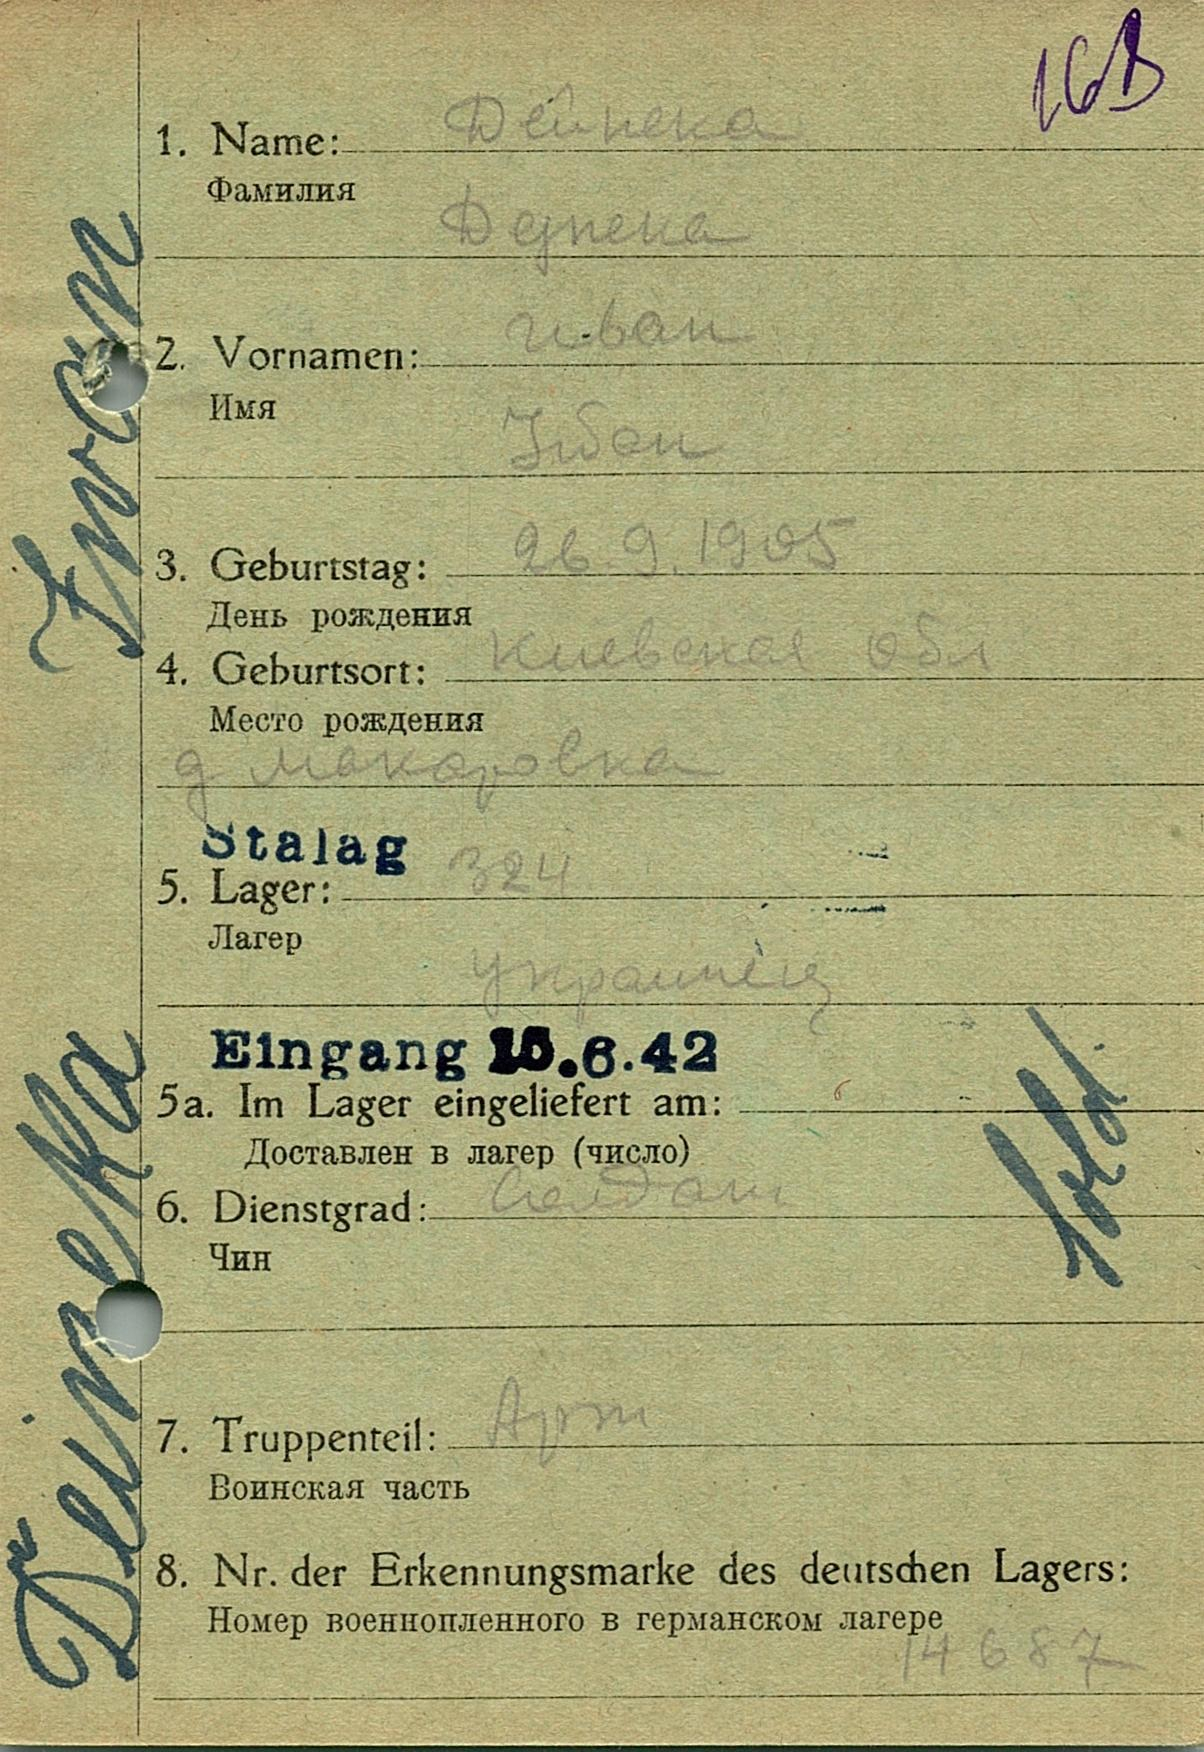 16B
1. Name: Дейнека
Фамилия
Дејнека
2. Vornamen: Иван
Имя
Iван
3. Geburtstag: 26.9.1905
День рождения
4. Geburtsort: Киевская обл
Место рождения
д Макаровка
Stalag
5. Lager: 324
Лагер
украинец
Eingang 10.6.42
5a. Im Lager eingeliefert am:
Доставлен в лагер (число)
6. Dienstgrad: Солдат
Чин
Sold.
7. Truppenteil: Арт
Воинская часть
8. Nr. der Erkennungsmarke des deutschen Lagers:
Номер военнопленного в германском лагере
14687
Deineka Iwan